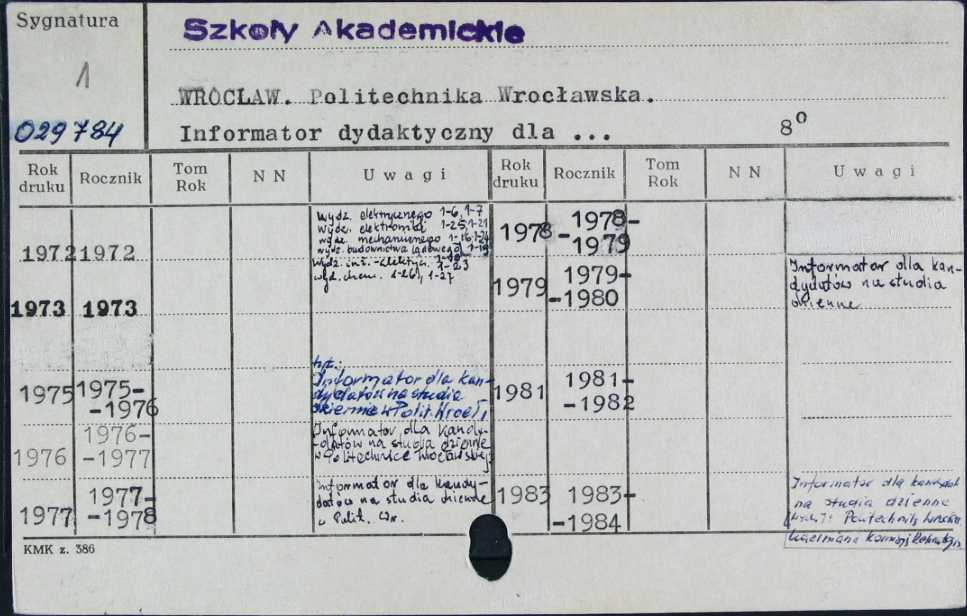 Sygnatura
1
029784
Szkoły Akademickie
WROCLAW. Politechnika Wrocławska.
Informator dydaktyczny dla ...
8°
Rok druku Rocznik Tom Rok N N Uwagi Rok druku Rocznik Tom Rok N N Uwagi
1972 1972
Wydz. elektrycznego 1-6, 1-7
Wydz. elektroniki 1-25, 1-21
wydz. mechanicznego 1-16, 1-21
wydz. budownictwa lądowego, 1-19
wydz. inż.-elektrycz. 1-23
wyd. chem. 1-26, 1-27
1973 1973
1975 1975-
-1976
tyt.:
Informator dla kan-
dydatów na studia
dzienne w Polit. Wrocł.
1976 1976-
-1977
Informator dla kandy-
datów na studia dzienne
w Politechnice Wrocławskiej
1977 1977-
-1978
Informator dla kandy-
datów na studia dzienne
w Polit. Wr.
1978 1978-
-1979
1979 1979-
-1980
Informator dla kan-
dydatów na studia
dzienne
1981 1981-
-1982
1983 1983-
-1984
Informator dla kandydat.
na studia dzienne
Politechniki
KMK z. 386